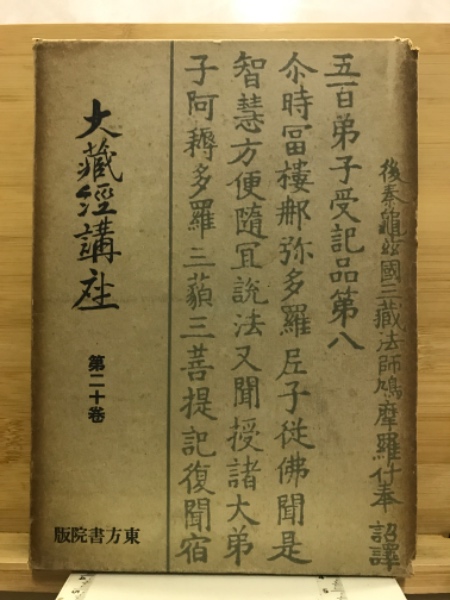 後秦龜茲國三藏法師鳩摩羅什奉 詔譯
五百弟子受記品第八
尒時冨樓那弥多羅尼子從佛聞是
智慧方便隨冝說法又聞授諸大弟
子阿耨多羅三藐三菩提記復聞宿
大藏經講座
第二十卷
東方書院版